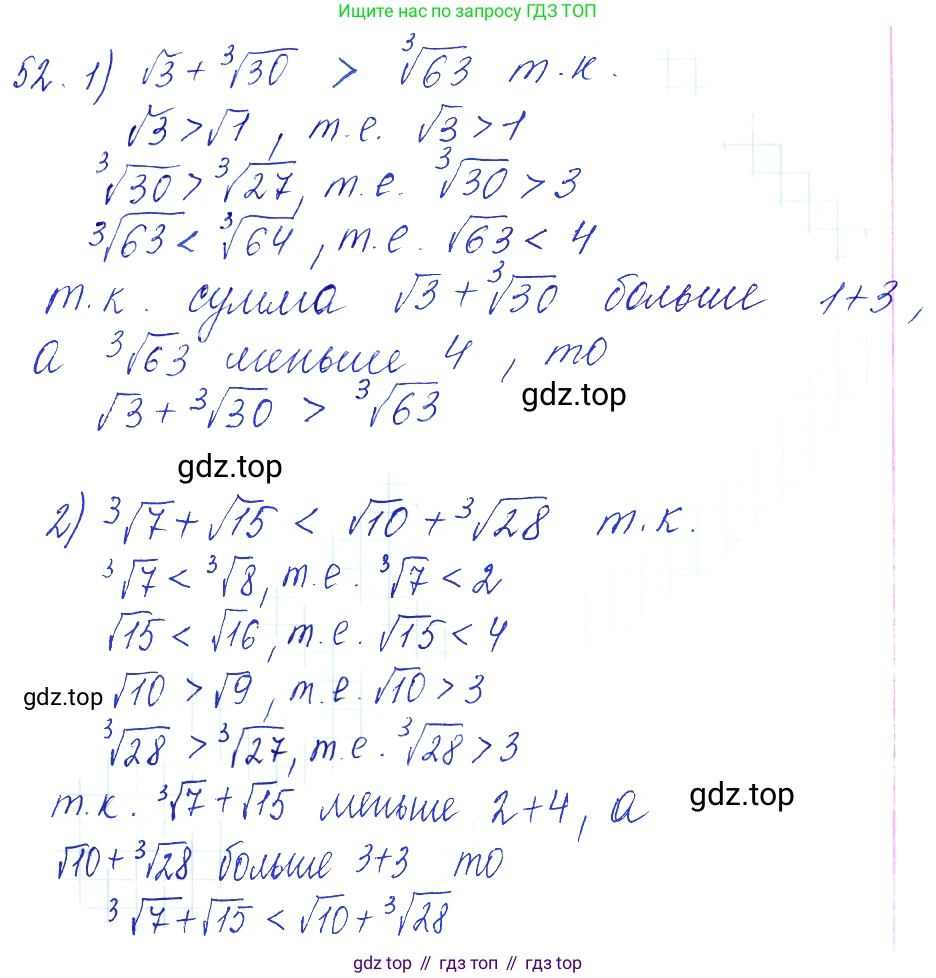 Ищите нас по запросу ГДЗ ТОП
52. 1) √3 + ∛30 > ∛63 т.к.
√3 > √1, т.е. √3 > 1
∛30 > ∛27, т.е. ∛30 > 3
∛63 < ∛64, т.е. √63 < 4
т.к. сумма √3 + ∛30 больше 1+3,
а ∛63 меньше 4, то
√3 + ∛30 > ∛63
gdz.top
gdz.top
2) ∛7 + √15 < √10 + ∛28 т.к.
∛7 < ∛8, т.е. ∛7 < 2
√15 < √16, т.е. √15 < 4
gdz.top
√10 > √9, т.е. √10 > 3
∛28 > ∛27, т.е. ∛28 > 3
т.к. ∛7 + √15 меньше 2+4, а
gdz.top
√10 + ∛28 больше 3+3 то
∛7 + √15 < √10 + ∛28
gdz top // гдз топ // гдз top